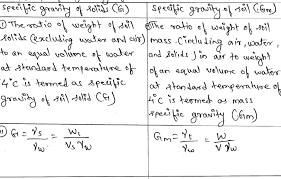 Specific gravity of solids (G)
① The ratio of weight of soil
solids (excluding water and air)
to an equal volume of water
at standard temperature of
4°C is termed as specific
gravity of soil solid (G)
G = γs/γw = Ws/Vs γw
Specific gravity of soil (Gm)
The ratio of weight of soil
mass (including air, water,
and solids) in air to weight
of an equal volume of water
at standard temperature of
4°C is termed as mass
specific gravity (Gm)
Gm = γt/γw = W/V γw